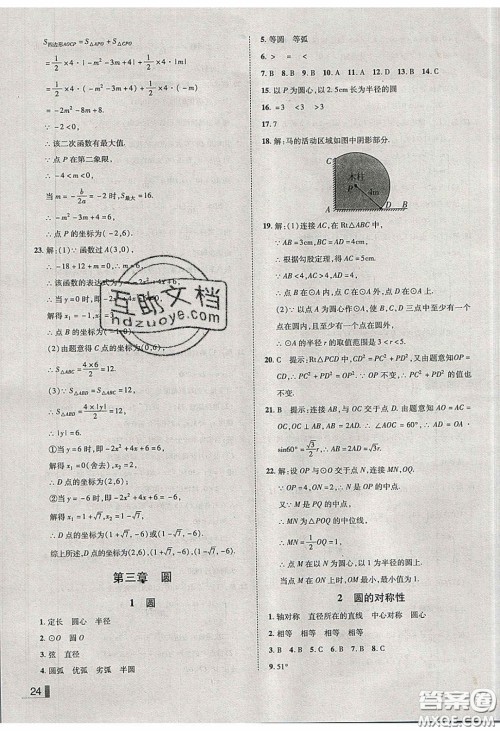 S四边形AOCP = S△APO + S△CPO
= 1/2 ×4·|-m²-3m+4| + 1/2 ×4·|m|
= 1/2 ×4·(-m²-3m+4) + 1/2 ×4·(-m)
= -2m²-8m+8.
∵ -2<0,
∴ 该二次函数有最大值.
∵ 点 P 在第二象限,
∴ m<0.
当 m = -b/2a = -2 时, S最大 = 16.
∴ -m²-3m+4=6.
∴ 点 P 的坐标为(-2,6).
23. 解:(1)∵ 函数过 A(3,0),
∴ -18+12+m=0. ∴ m=6.
∴ 该函数的表达式为
∴ 当
解得
∴ 点 B 的坐标为(-1,0).
(2)由题意得 C 点的坐标为
∴ S△ABC = 4×6/2 = 12.
(3)∵ S△ABD = S△ABC = 12,
∴ S△ABD = 4×|y|/2 = 12.
∴ |y|=6.
①当 y=6 时, -2x²+4x+6=6,
解得 x₁=0(舍去), x₂=2.
∴ D 点的坐标为(2,6);
②当 y=-6 时, -2x²+4x+6=-6,
解得 x₁=1+√7, x₂=1-√7.
∴ D 点的坐标为(1+√7,-6)或(1-√7,-6).
综上所述,D 点的坐标为(2,6)或(1+√7,-6)或(1-√7,-6).
第三章 圆
1 圆
1. 定长 圆心 半径
2. ⊙O 圆 圆O
3. 弦 直径
4. 圆弧 优弧 劣弧 半圆
24
5. 等圆 等弧
6. > = <
7. B 8. B 9. A 10. B 11. B 12. A 13. B 14. C
15. 以 P 为圆心,以 2.5cm 长为半径的圆
16. =3 <3 >3
17. 7
18. 解:马的活动区域如图中阴影部分.
木柱
P
4m
19. 解:(1)连接 AC,在 Rt△ABC 中,
∵ AB=3cm,BC=AD=4cm,
∴ 根据勾股定理,得 AC=5cm.
∵ AB=3cm<4cm,AC=5cm>4cm,AD=4cm,
∴ 点 B 在⊙A 内,点 D 在⊙A 上,点 C 在⊙A 外.
(2)∵ 以点 A 为圆心作⊙A,使 B,C,D 三点中至少有一点在圆内,且至少有一点在圆外,
∴ ⊙A 的半径 r 的取值范围是 3<r<5.
20. C 提示:Rt△PCD 中,CD²=PC²+PD²,又题意知 OP=CD,∴ PC²+PD²=OP²,∴ PC²+PD² 的值也不变.
21. B 提示:连接 OA,OC,由题意知 AO=AC=OC,又∵ OC=BC,∴ ∠AOC=60°,∴ AB=2·OA·sin60°=√3/2 r=√3r.
22. 解:设 OP 与⊙O 交于点 N,连接 MN,OQ.
∵ OP=4,ON=2,∴ N 是 OP 的中点.
∵ M 是 PQ 的中点,
∴ MN 为△POQ 的中位线.
∴ MN = 1/2 OQ = 1/2 ×2=1.
∴ 点 M 在以 N 为圆心,1 为半径的圆上.
∴ 当点 M 在 ON 上时,OM 最小,最小值为 1.
2 圆的对称性
1. 轴对称 直径所在的直线 中心对称 圆心
2. 相等 相等 相等 相等
9. 51°
互助文档
hdzuoye.com
答案圈
MXQE.COM